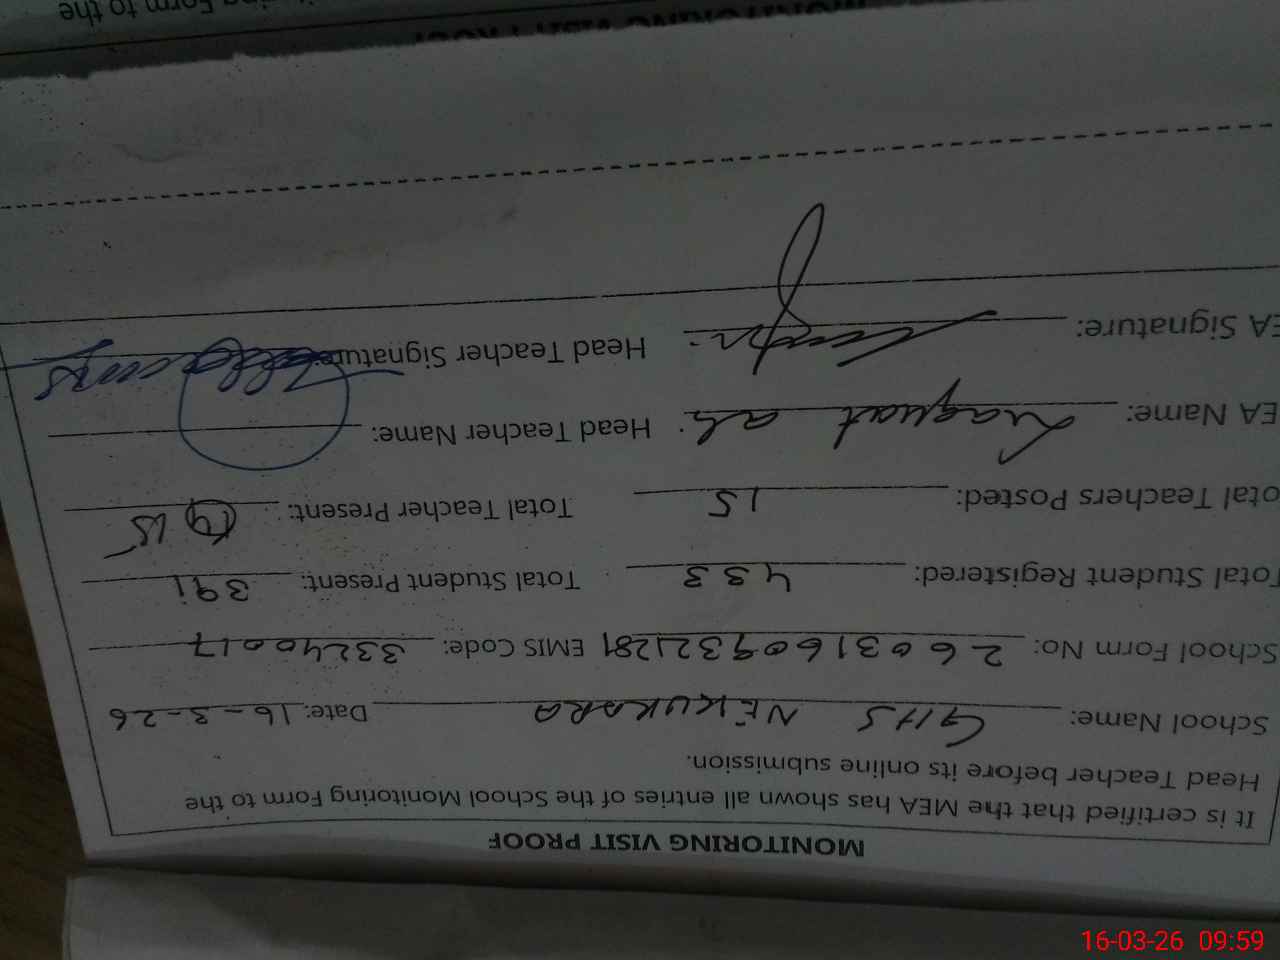 MONITORING VISIT PROOF
It is certified that the MEA has shown all entries of the School Monitoring Form to the
Head Teacher before its online submission.
School Name: GHS NEKUKARA Date: 16-3-26
School Form No: 2603160932128 EMIS Code: 33240017
Total Student Registered: 433 Total Student Present: 391
Total Teachers Posted: 15 Total Teacher Present: 15
EA Name: Liaquat ali Head Teacher Name:
EA Signature: Head Teacher Signature:
MONITORING VISIT PROOF
Form to the
16-03-26 09:59